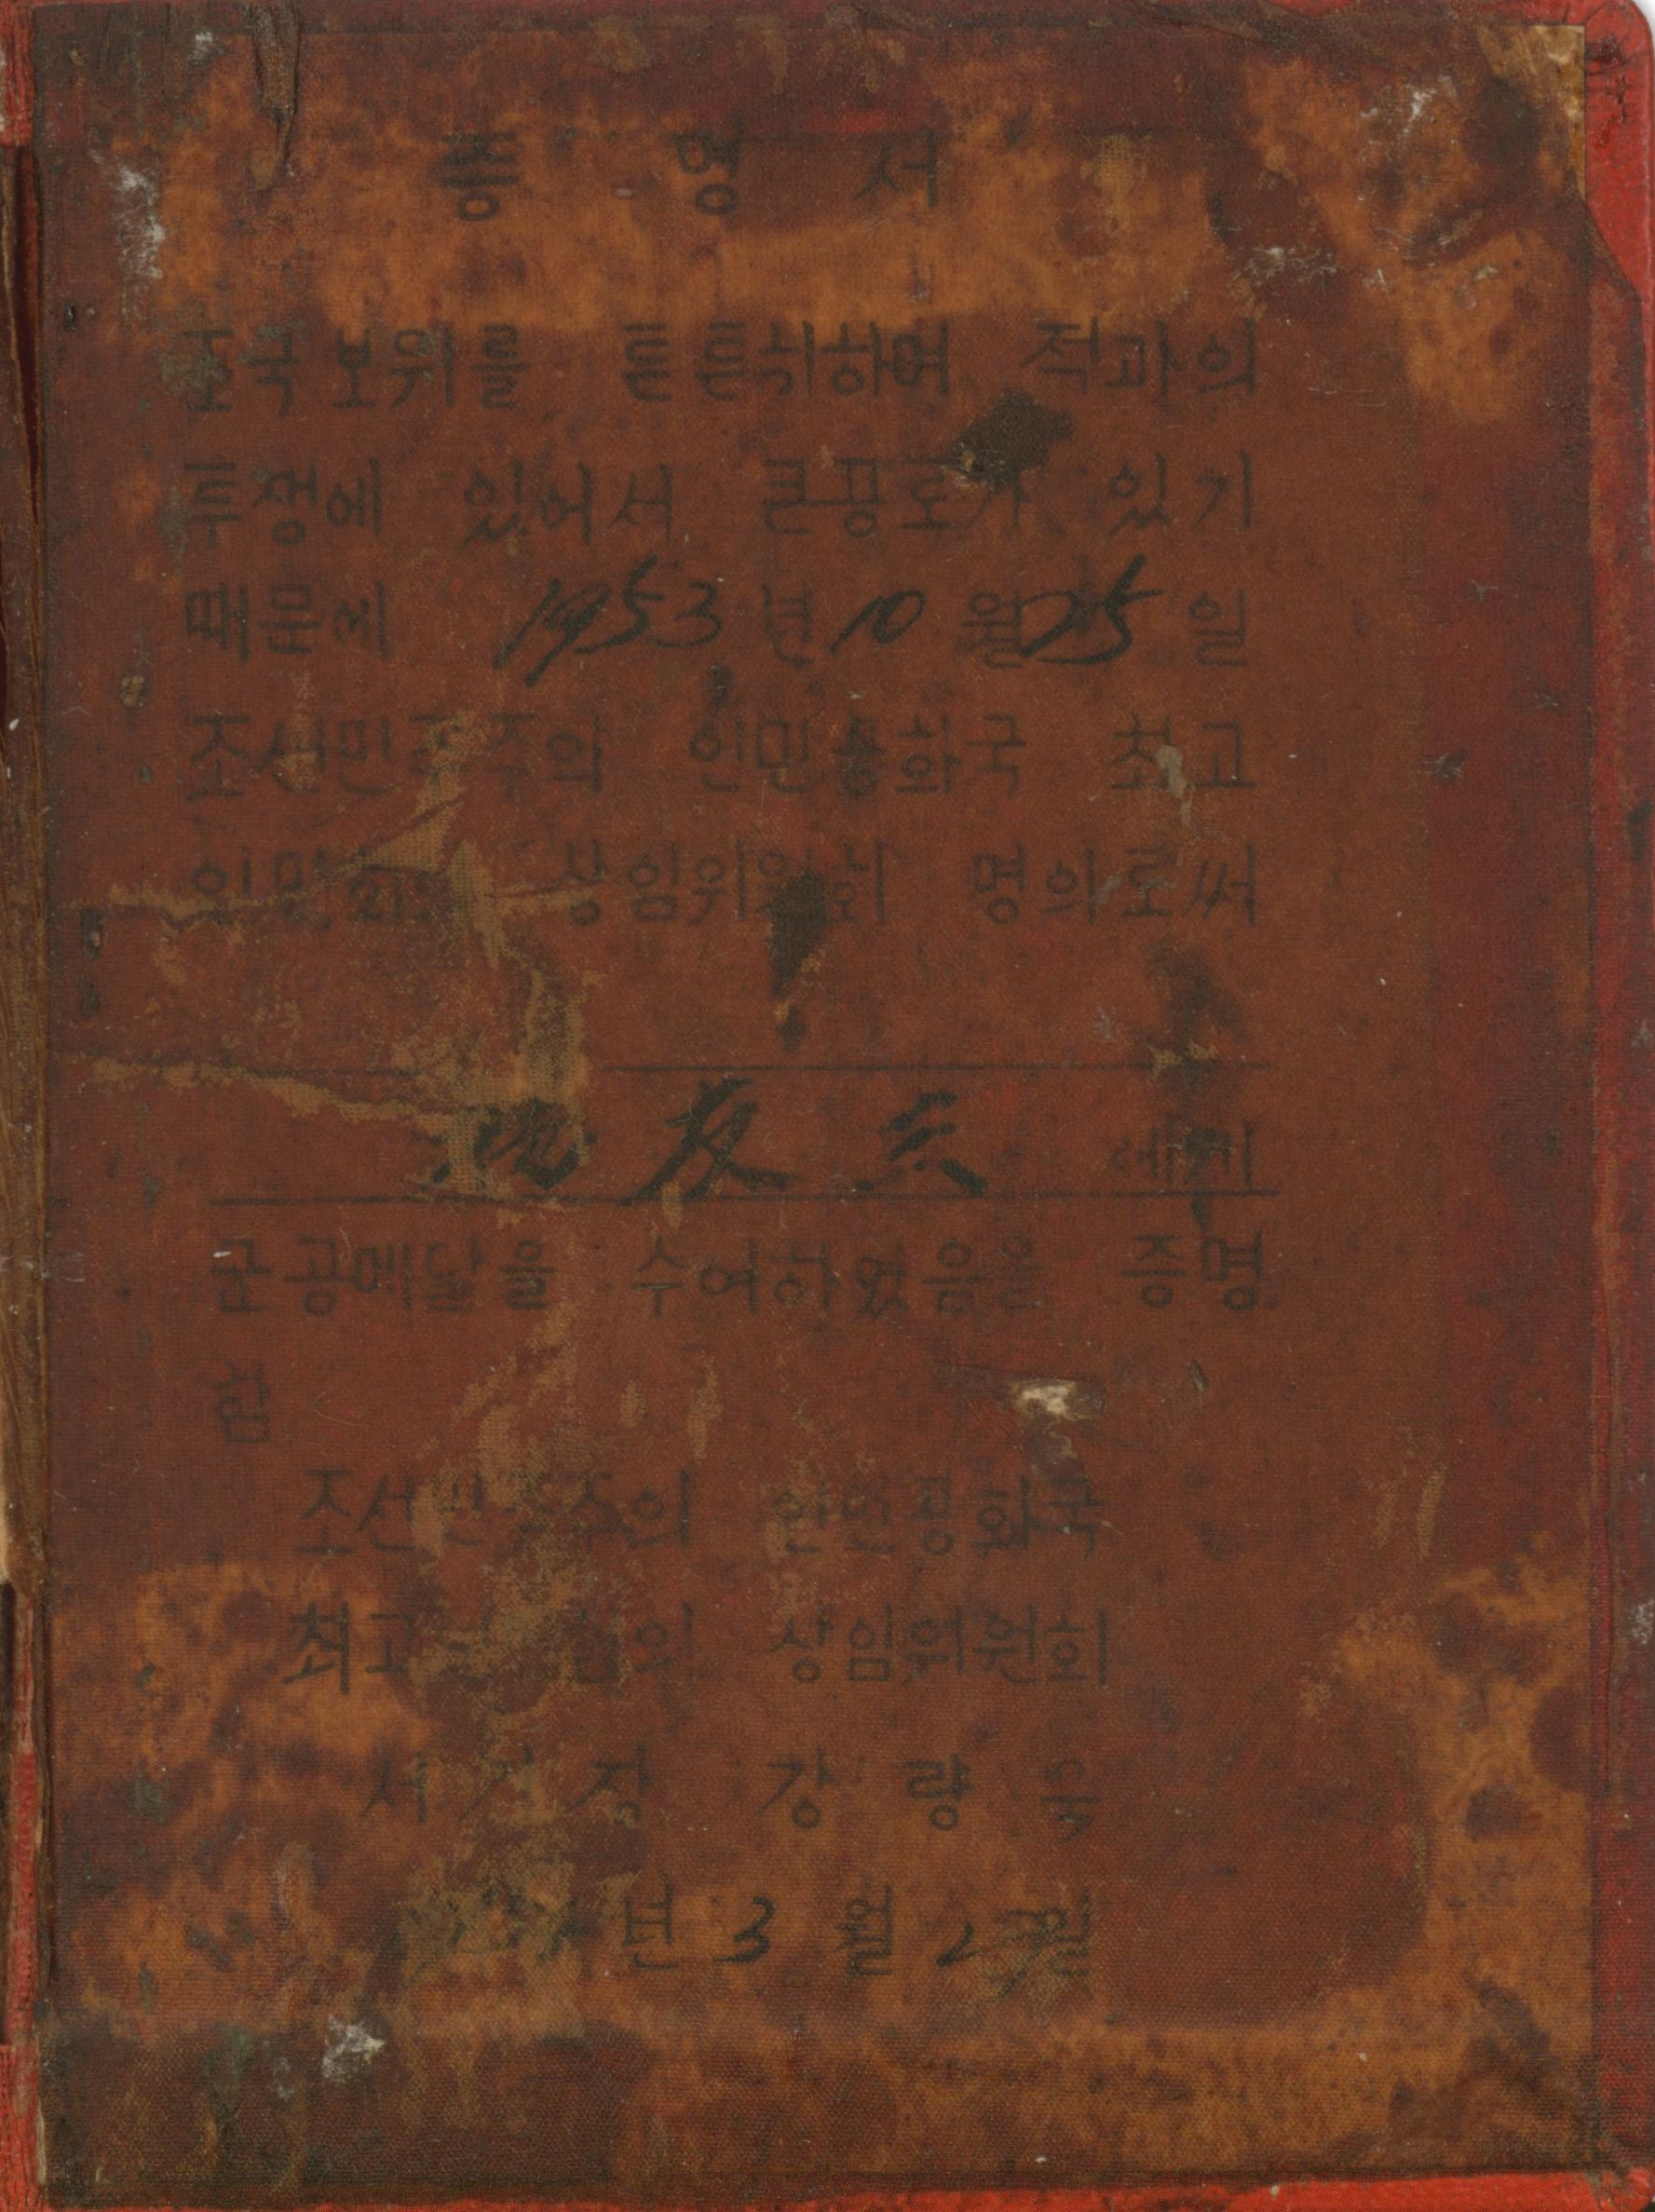 증 명 서
조국보위를 튼튼히하며 적과의
투쟁에 있어서 큰공로가 있기
때문에 1953 년 10 월 25 일
조선민주주의 인민공화국 최고
인민회의 상임위원회 명의로써
友 에게
군공메달을 수여하였음을 증명
함
조선민주주의 인민공화국
최고인민회의 상임위원회
서기장 강량욱
년 3 월 일